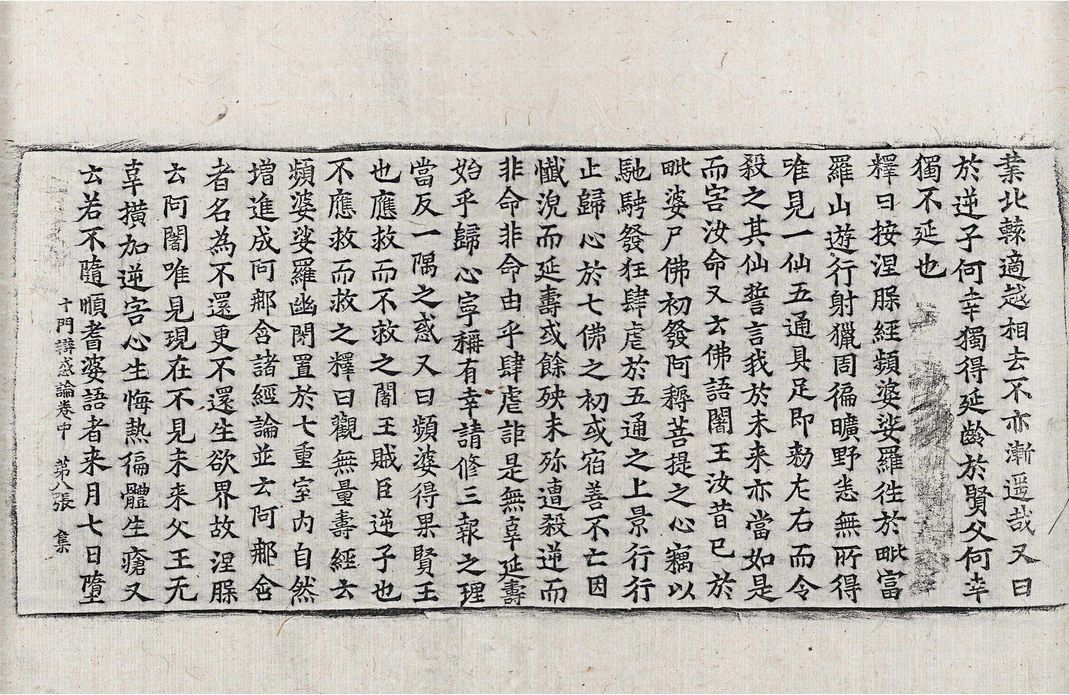 業北轅適越相去不亦漸遥哉又曰
於逆子何幸獨得延齡於賢父何幸
獨不延也
釋曰按涅槃經頻婆娑羅往於毗富
羅山遊行射獵周徧曠野悉無所得
唯見一仙五通具足即勑左右而令
殺之其仙誓言我於未来亦當如是
而害汝命又云佛語闍王汝昔已於
毗婆尸佛初發阿耨菩提之心竊以
馳騁發狂肆虐於五通之上景行行
止歸心於七佛之初或宿善不亡因
懺洗而延壽或餘殃未殄遭殺逆而
非命非命由乎肆虐詎是無辜延壽
始乎歸心寧稱有幸請修三報之理
當反一隅之惑又曰頻婆得果賢王
也應救而不救之闍王賊臣逆子也
不應救而救之釋曰觀無量壽經云
頻婆娑羅幽閉置於七重室内自然
増進成阿那含諸經論並云阿那含
者名為不還更不還生欲界故涅槃
云阿闍唯見現在不見未来父王无
辜撗加逆害心生悔熱徧體生瘡又
云若不隨順耆婆語者来月七日墮
十門辯惑論卷中　第八張　集